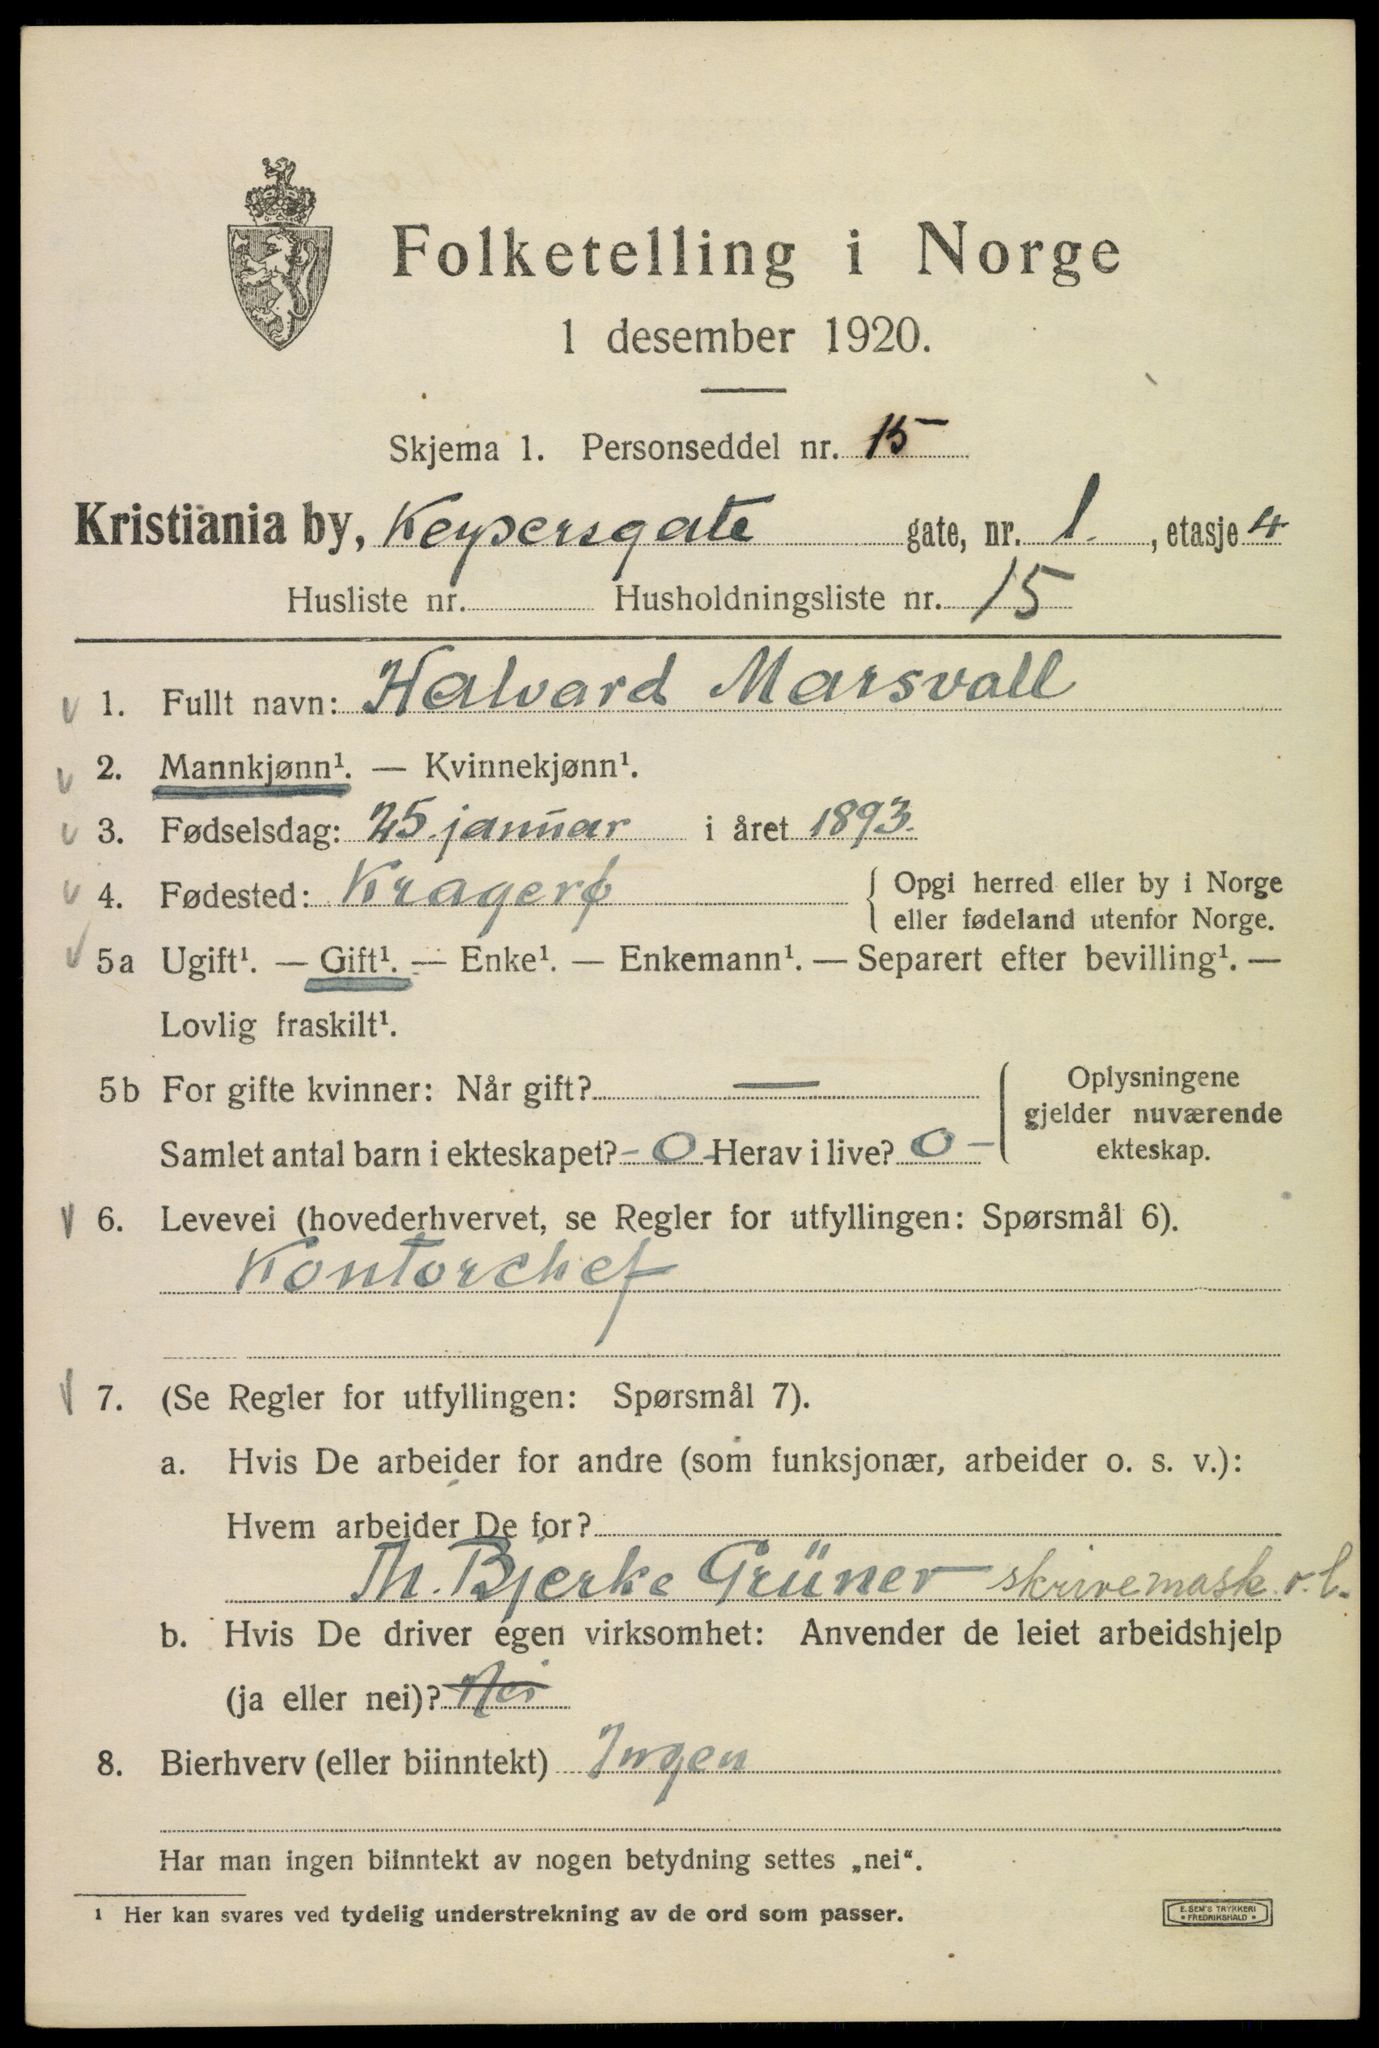 Folketelling i Norge
1 desember 1920.
Skjema 1. Personseddel nr. 15
Kristiania by, Keysersgate gate, nr. 1. , etasje 4
Husliste nr. Husholdningsliste nr. 15
1. Fullt navn: Halvard Marsvall
2. Mannkjønn¹. — Kvinnekjønn¹.
3. Fødselsdag: 25. januar i året 1893.
4. Fødested: Kragerø { Opgi herred eller by i Norge
eller fødeland utenfor Norge.
5a Ugift¹. — Gift¹. — Enke¹. — Enkemann¹. — Separert efter bevilling¹. —
Lovlig fraskilt¹.
5b For gifte kvinner: Når gift? —
Samlet antal barn i ekteskapet? - 0 - Herav i live? 0 -
Oplysningene
gjelder nuværende
ekteskap.
6. Levevei (hovederhvervet, se Regler for utfyllingen: Spørsmål 6).
Kontorchef
7. (Se Regler for utfyllingen: Spørsmål 7).
a. Hvis De arbeider for andre (som funksjonær, arbeider o. s. v.):
Hvem arbeider De for?
Th. Bjerke Grüner skrivemask. o. l.
b. Hvis De driver egen virksomhet: Anvender de leiet arbeidshjelp
(ja eller nei)? Nei
8. Bierhverv (eller biinntekt) Ingen
Har man ingen biinntekt av nogen betydning settes „nei“.
¹ Her kan svares ved tydelig understrekning av de ord som passer.
E. SEM'S TRYKKERI
• FREDRIKSHALD •